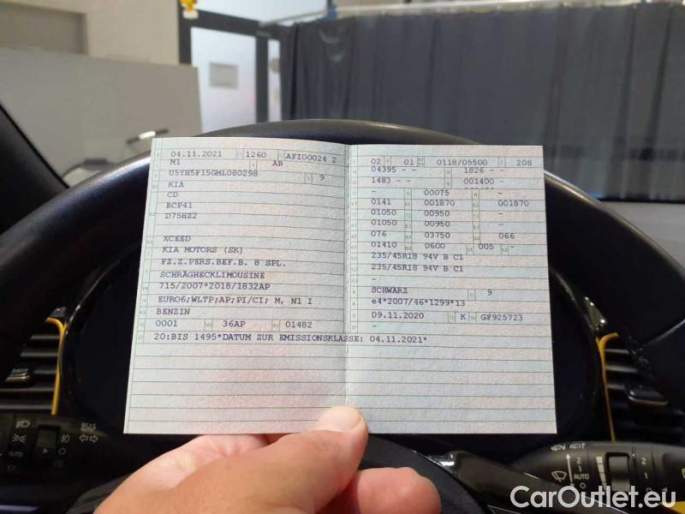 04.11.2021 1260 AFI00024 2
M1 AB
U5YH5F15GML080298 9
KIA
CD
BCP41
D75HZ2
XCEED
KIA MOTORS (SK)
FZ.Z.PERS.BEF.B. 8 SPL.
SCHRÄGHECKLIMOUSINE
715/2007*2018/1832AP
EURO6;WLTP;AP;PI/CI; M, N1 I
BENZIN
0001 36AP 01482
20:BIS 1495*DATUM ZUR EMISSIONSKLASSE: 04.11.2021*
02 01 0118/05500 208
04395 - - 1826 - -
1483 - - 001400 -
- 00075 -
0141 001870 001870
01050 00950 -
01050 00950 -
076 03750 066
01410 0600 005 -
235/45R18 94V B C1
235/45R18 94V B C1
-
SCHWARZ 9
e4*2007/46*1299*13
09.11.2020 K GF925723
-
AUTO
CarOutlet.eu